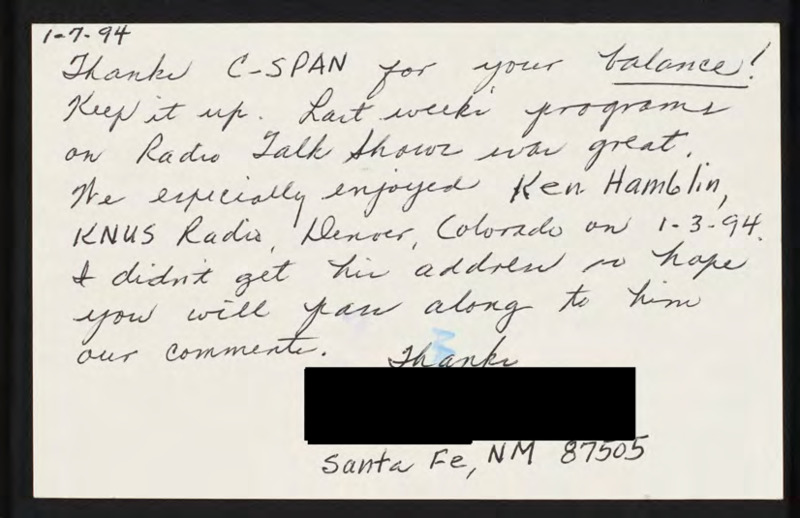 1-7-94
Thanks C-SPAN for your balance!
Keep it up. Last week's programs
on Radio Talk Shows was great.
We especially enjoyed Ken Hamblin,
KNUS Radio, Denver, Colorado on 1-3-94.
I didn't get his address so hope
you will pass along to him
our comments. Thanks
Santa Fe, NM 87505